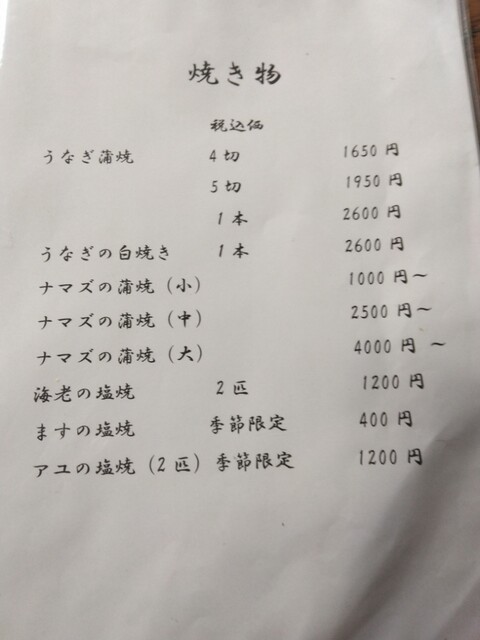 焼き物
税込価
うなぎ蒲焼 4切 1650円
5切 1950円
1本 2600円
うなぎの白焼き 1本 2600円
ナマズの蒲焼（小） 1000円～
ナマズの蒲焼（中） 2500円～
ナマズの蒲焼（大） 4000円～
海老の塩焼 2匹 1200円
ますの塩焼 季節限定 400円
アユの塩焼（2匹）季節限定 1200円